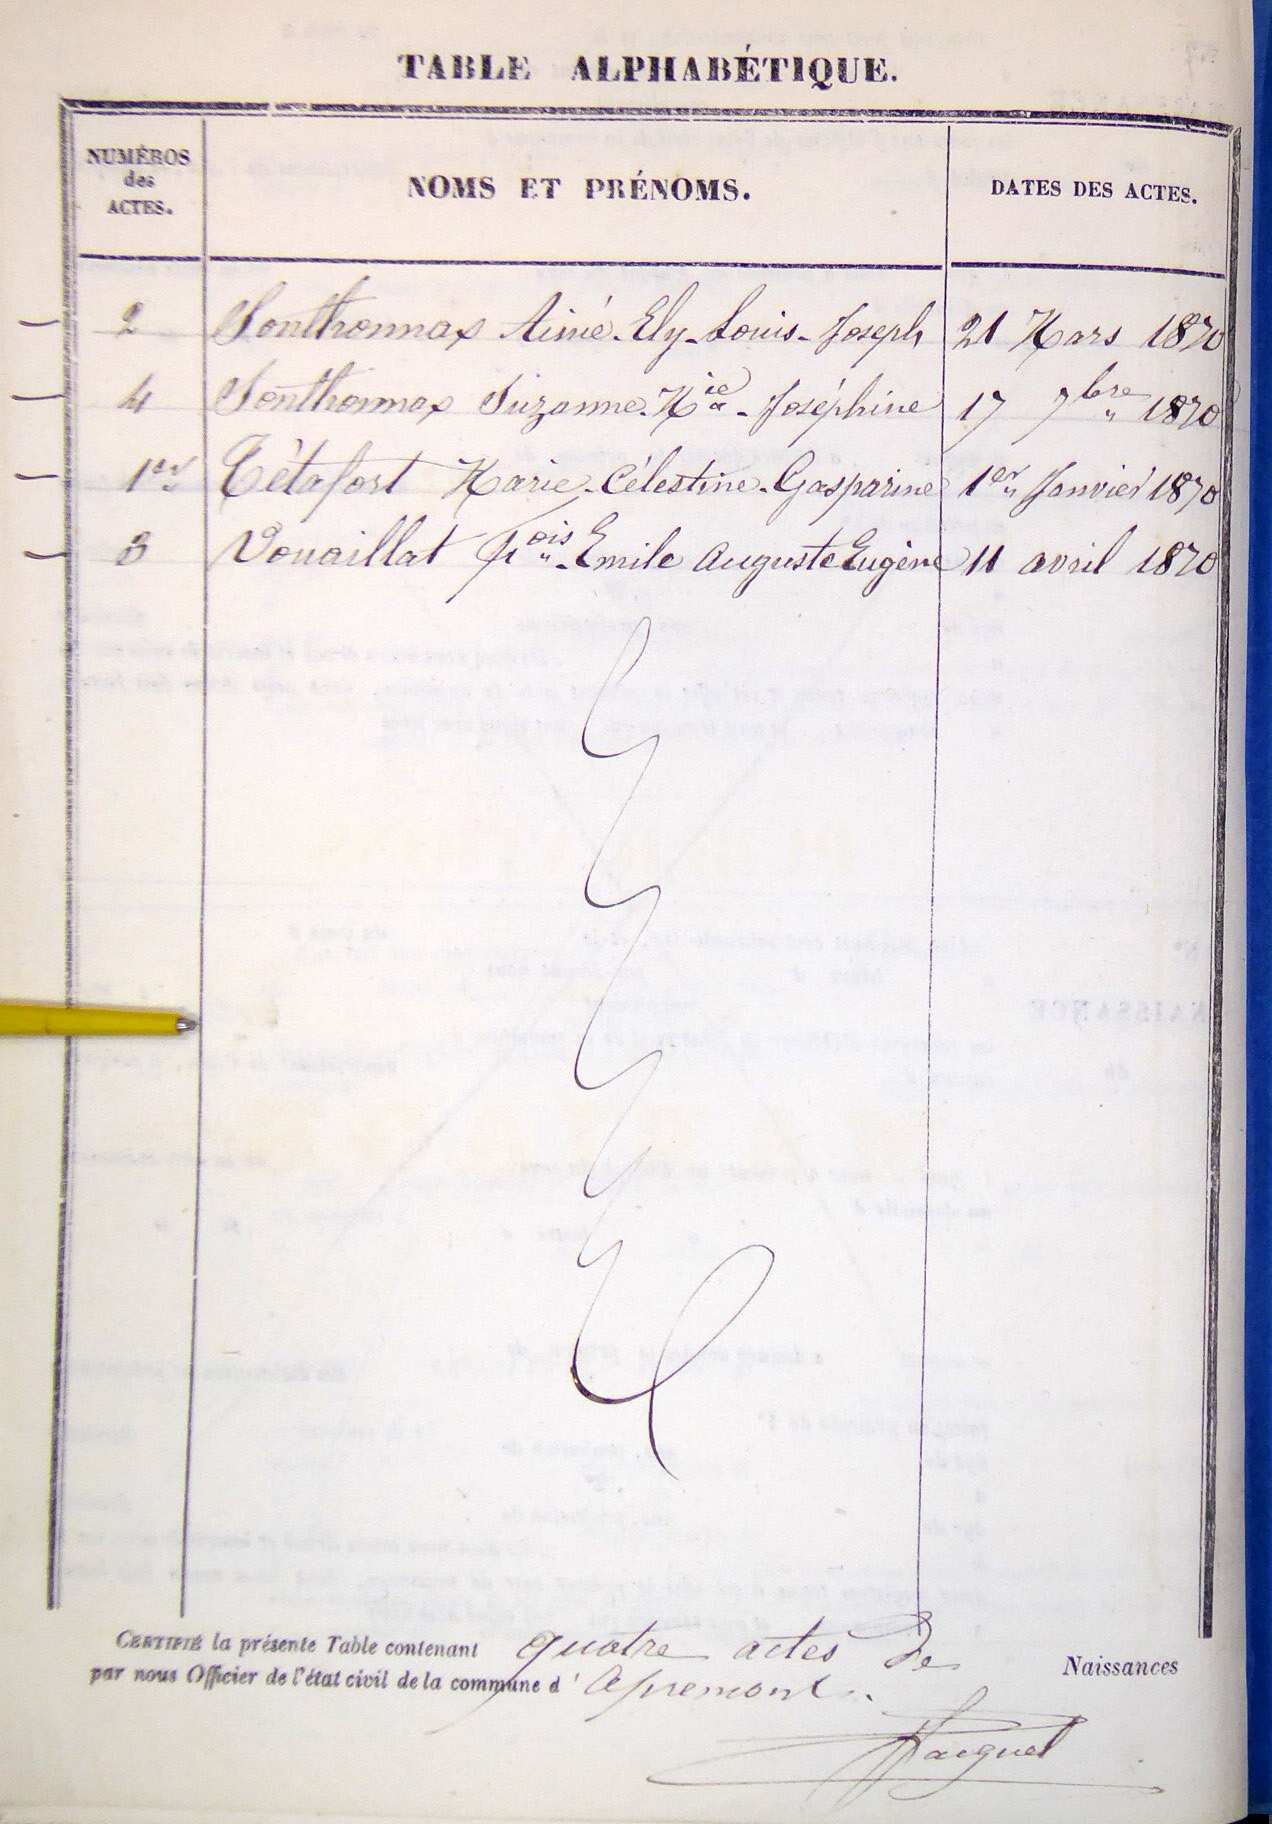 TABLE ALPHABÉTIQUE.
NUMÉROS des ACTES.
NOMS ET PRÉNOMS.
DATES DES ACTES.
2 Sonthonnax Aimé-Ely-Louis-Joseph 21 Mars 1870
4 Sonthonnax Suzanne-Mie-Joséphine 17 7bre 1870
1er Tétafort Marie-Célestine-Gasparine 1er Janvier 1870
3 Vouaillat Fois-Emile Auguste Eugène 11 avril 1870
CERTIFIÉ la présente Table contenant quatre actes de Naissances
par nous Officier de l'état civil de la commune d' Apremont.